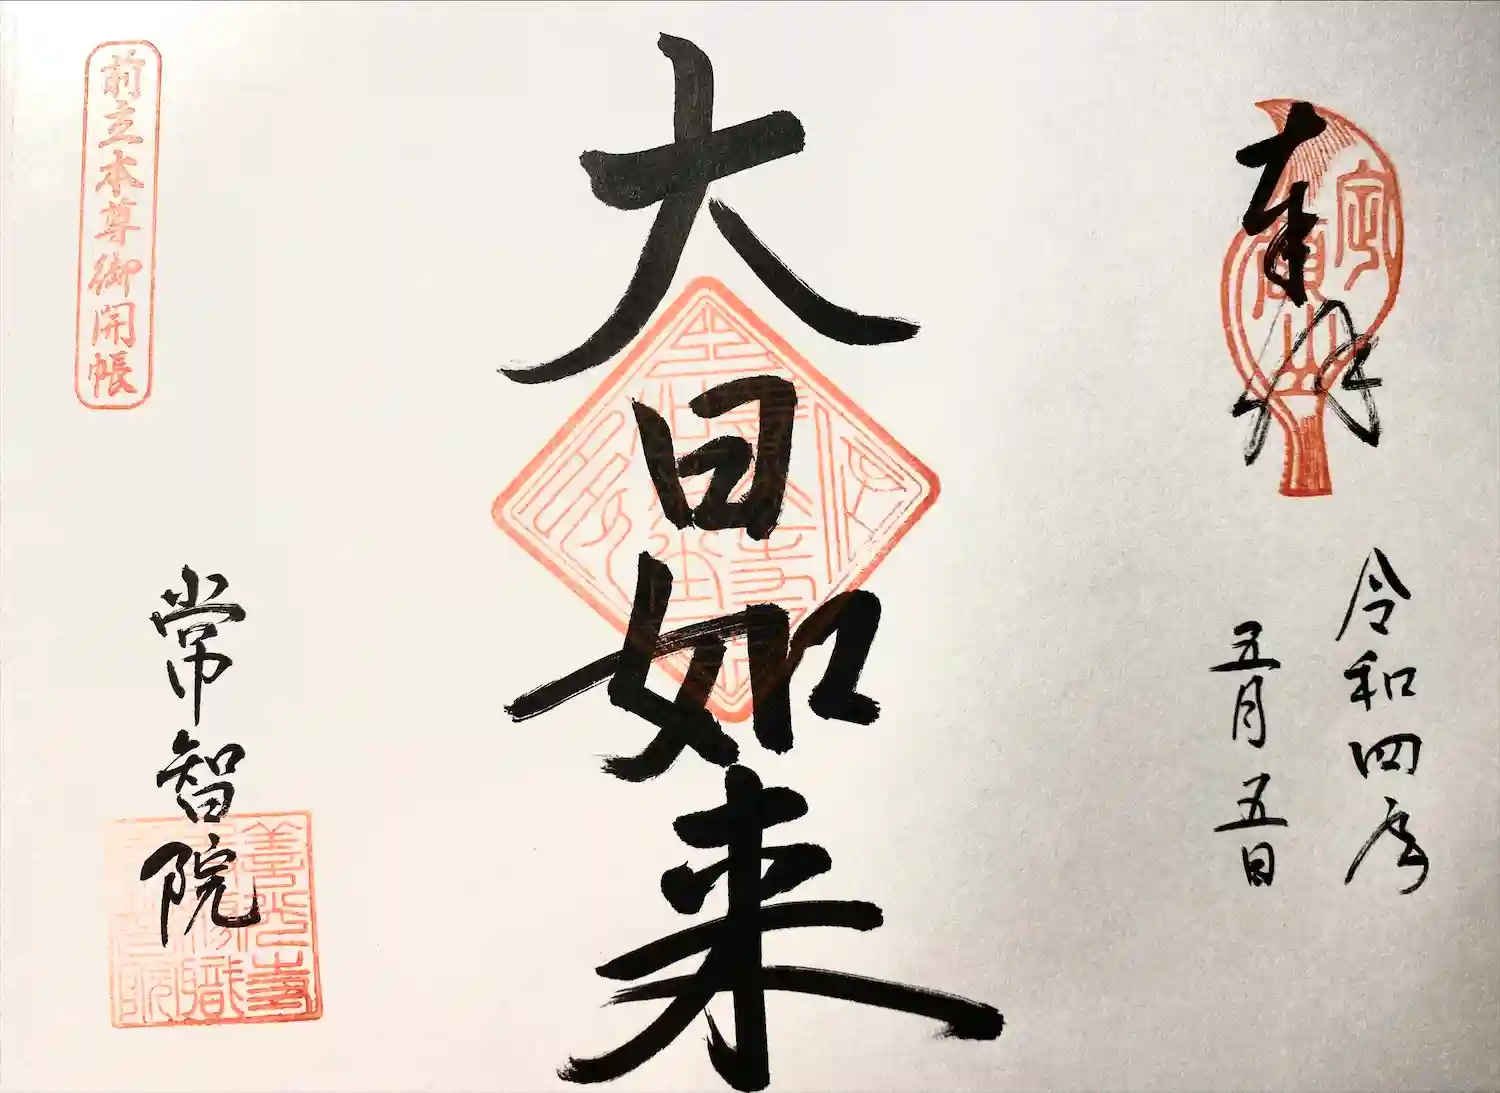 奉拝
令和四年
五月五日
大日如来
前立本尊御開帳
常智院